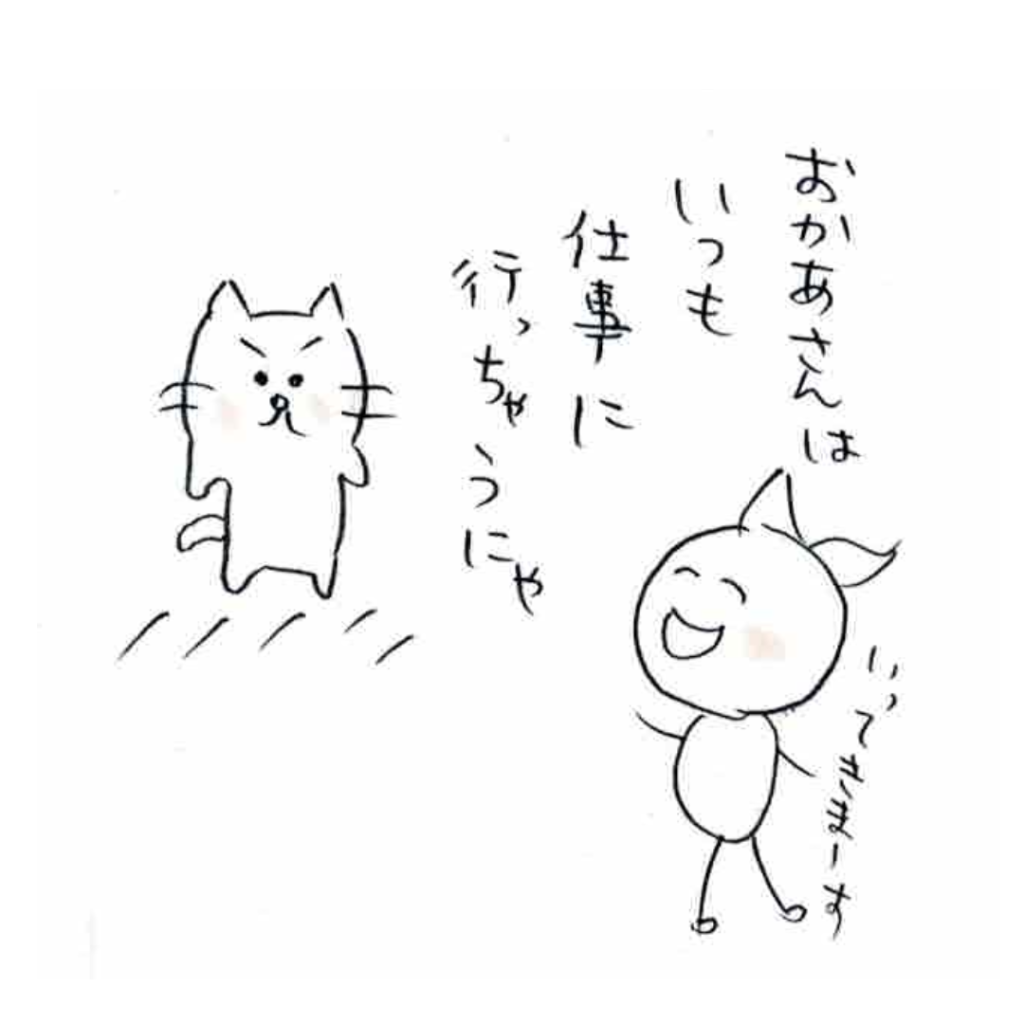 おかあさんは
いつも
仕事に
行っちゃうにゃ
いってきまーす